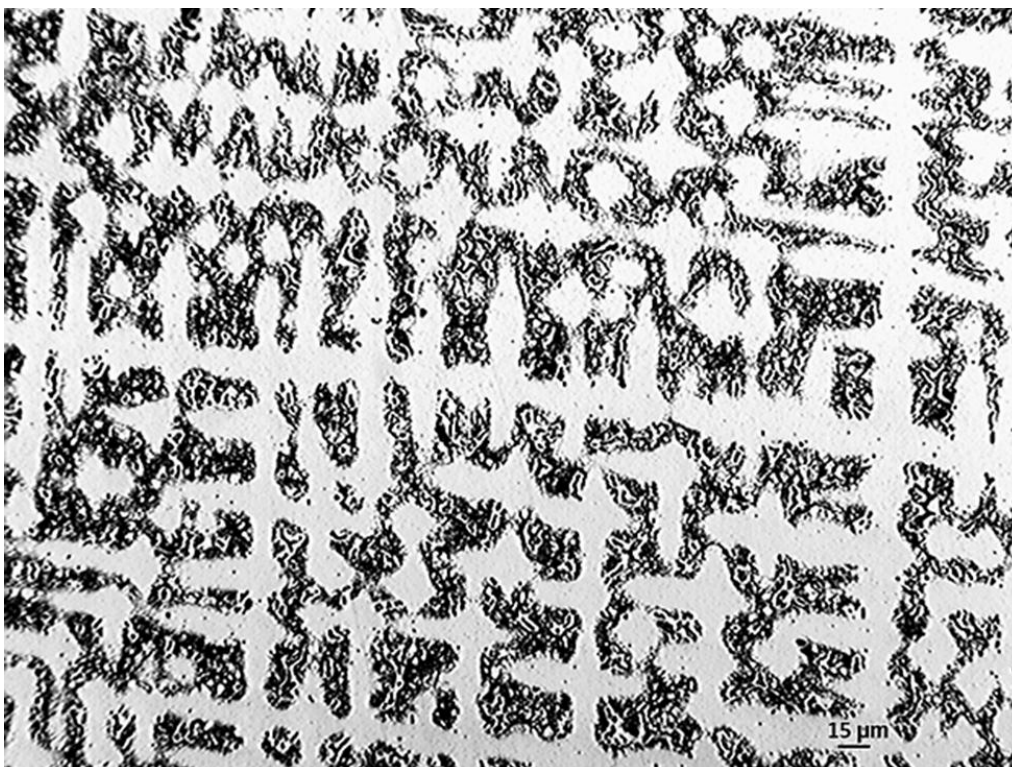 15 µm